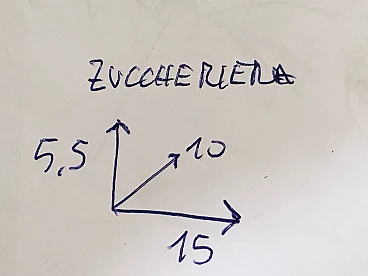 ZUCCHERIERA
5,5
10
15